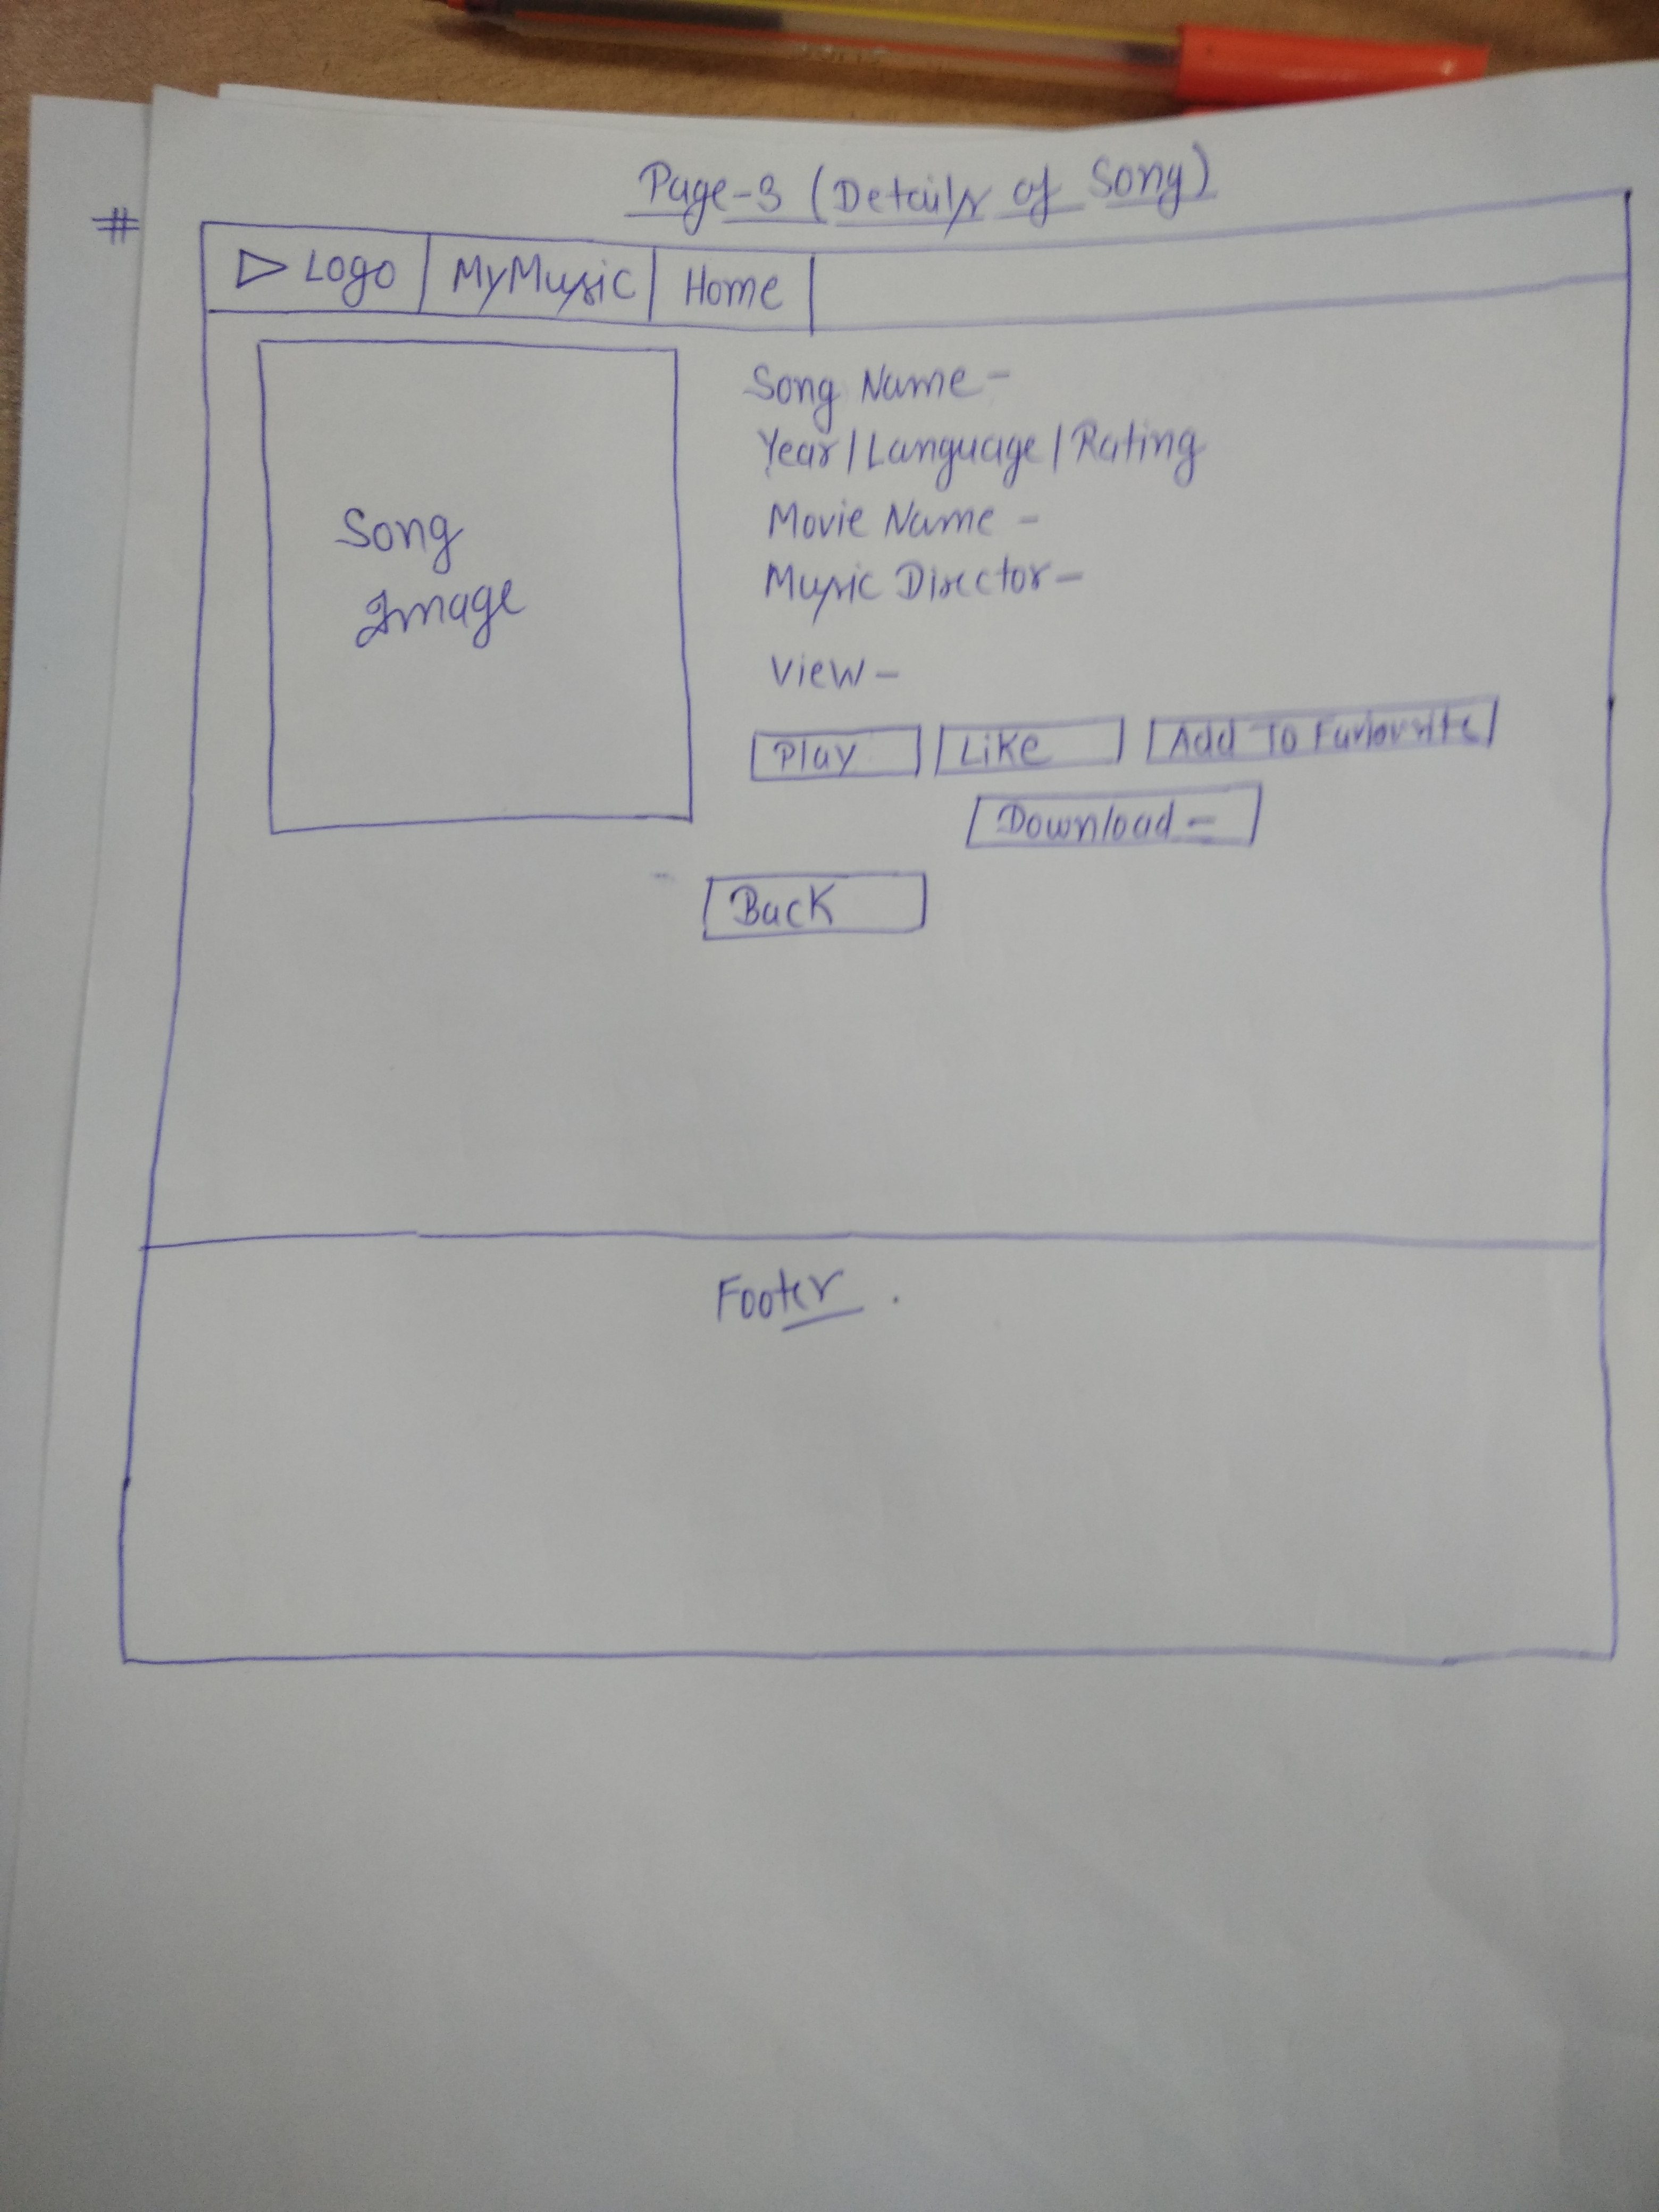 Page-3 (Details of Song)
#
Logo MyMusic Home
Song Name -
Year/Language/Rating
Movie Name -
Music Director -
Song
Image
View -
Play Like Add To Favourite
Download -
Back
Footer .